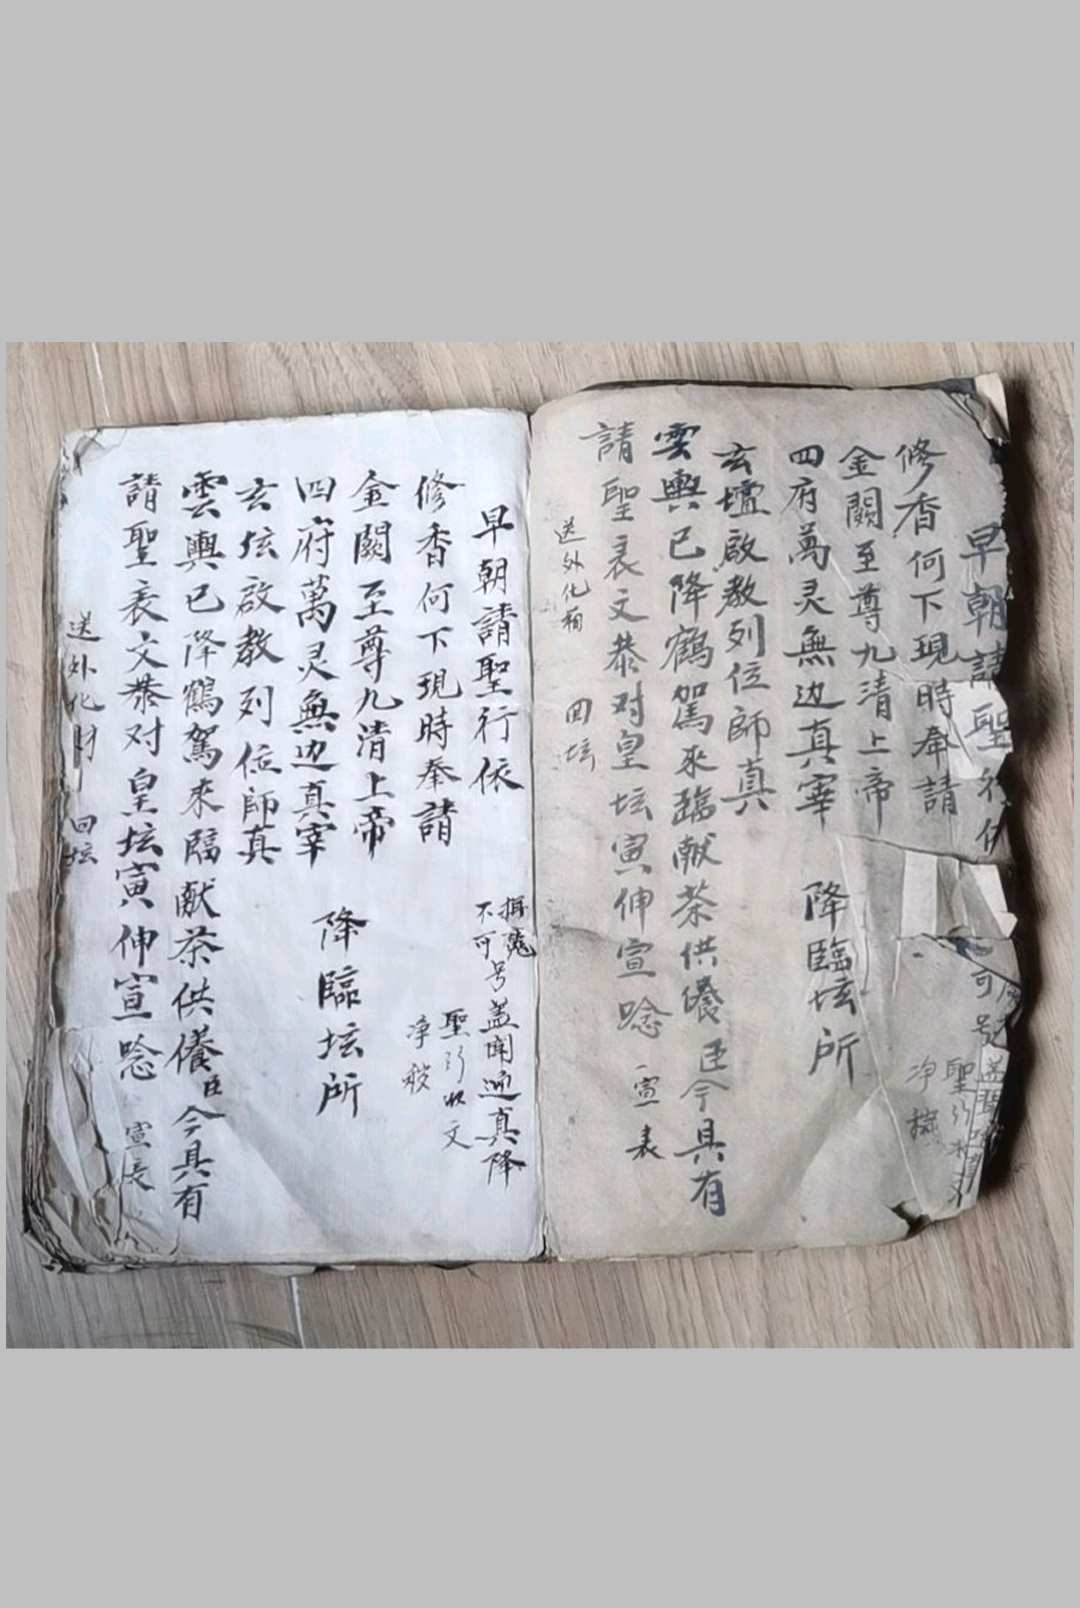 早朝請聖
可号
聖行
净
修香何下現時奉請
金闕至尊九清上帝
四府萬灵無边真宰
降臨坛所
玄壇啟教列位師真
雲輿已降鶴駕來臨献茶供養臣今具有
請聖表文恭对皇坛寅伸宣唸
宣表
送外化
回坛
早朝請聖行依
不可号盖聞迎真降
聖行收文
净
修香何下現時奉請
金闕至尊九清上帝
四府萬灵無边真宰
降臨坛所
玄坛啟教列位師真
雲輿已降鶴駕來臨献茶供養臣今具有
請聖表文恭对皇坛寅伸宣唸
宣表
送外化財
回坛